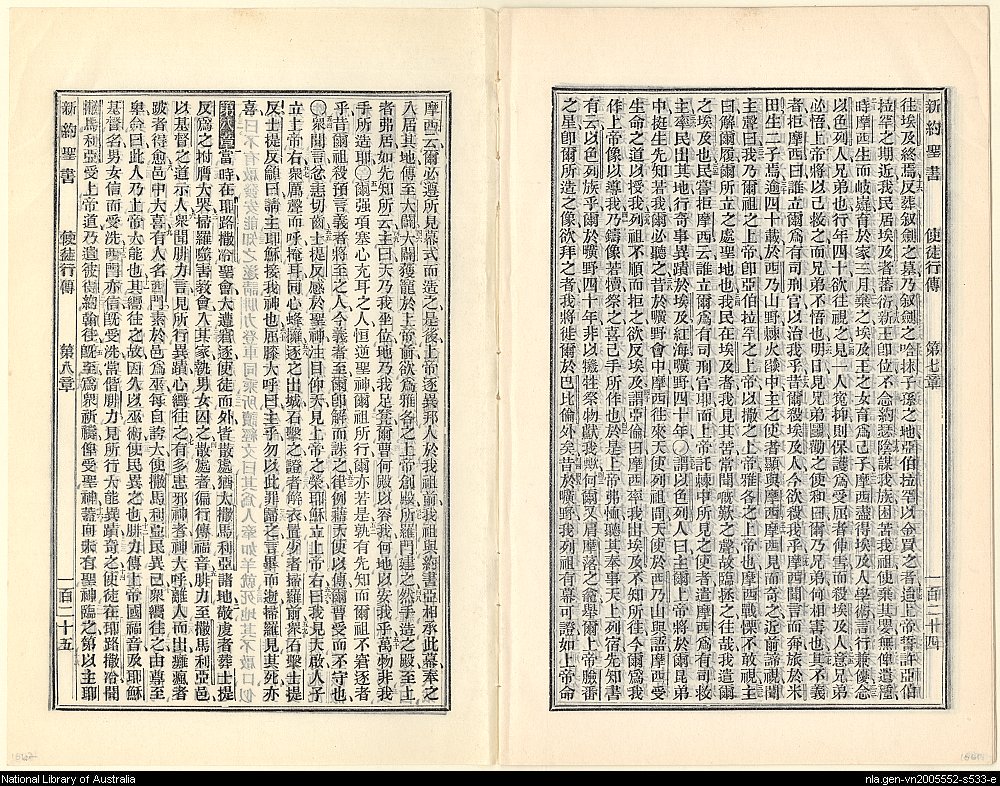 新約聖書　使徒行傳　第七章　一百二十四
往埃及終焉反葬叙劍之墓乃叙劍之哈抹子孫之地亞伯拉罕以金買之者適上帝誓許亞伯
拉罕之期近我民居埃及者蕃衍新王即位不念約瑟陰謀我族困苦我祖使棄其嬰無俾遺種
時摩西生而岐嶷育於家三月棄之埃及王之女育爲己子摩西盡得埃及人學術言行兼優念
以色列人兄弟也行年四十欲往視之見一人寃抑則保護爲受屈者伸害而殺埃及人意兄弟
必悟上帝將以己救之而兄弟不悟也明日見兄弟鬭勸之使和曰爾乃兄弟何相害也其不義
者拒摩西曰誰立爾爲有司刑官以治我乎昔爾殺埃及人今欲殺我乎摩西聞言而奔旅於米
田生二子焉逾四十載於西乃山野棘火燄中主之使者顯與摩西摩西見而奇之近前諦視聞
主聲曰我乃爾祖之上帝即亞伯拉罕之上帝以撒之上帝雅各之上帝也摩西戰慄不敢視主
曰解爾履爾所立之處聖地也我民在埃及者我見其苦常聞嘅歎之聲故臨拯之往哉我遣爾
之埃及也民嘗拒摩西云誰立爾爲有司刑官耶而上帝託棘中所見之使者遣摩西爲有司救
主率民出其地行奇事異蹟於埃及紅海曠野四十年〇謂以色列人曰主爾上帝將於爾昆弟
中挺生先知若我爾必聽之昔於曠野會中摩西往來天使列祖間天使於西乃山與語摩西受
生命之道以授我列祖不順而拒之欲反埃及謂亞倫曰摩西率我出埃及不知所往今爾爲我
作上帝像以導我乃鑄像若犢祭之喜己手所作也於是上帝弗恤聽其奉事天上列宿先知書
有云以色列族乎爾於曠野四十年非以犧牲祭物獻我歟何爾又肩摩落之龕舉爾上帝臉番
之星即爾所造之像欲拜之者我將徙爾於巴比倫外矣昔於曠野我列祖有幕可證如上帝命
摩西云爾必遵所見幕式而造之是後上帝逐異邦人於我祖前我祖與約書亞相承此幕奉之
入居其地傳至大闢大闢獲寵於上帝前欲爲雅各之上帝創殿所羅門建之然手造之殿至上
者弗居如先知所云主曰天乃我坐位地乃我足凳爾曹何殿以容我何地以安我乎萬物非我
手所造耶〇爾強項塞心充耳之人恒逆聖神爾祖所行爾亦若是孰有先知而爾祖不窘逐者
乎昔爾祖殺預言義者將至之人今義者至爾即解而誅之律例藉天使以傳爾曹受而不守也
〇衆聞言忿恚切齒士提反感於聖神注目仰天見上帝之榮耶穌立上帝右曰我見天啟人子
立上帝右衆厲聲而呼掩耳同心蜂擁逐之出城石擊之證者解衣置少者掃羅前衆石擊士提
反士提反籲曰籲主耶穌接我神也屈膝大呼曰主乎勿以此罪歸之言畢而逝掃羅見其死亦
喜
第八章當時在耶路撒冷聖會大遭窘逐使徒而外皆散處猶太撒馬利亞諸地敬虔者葬士提
反爲之拊膺大哭掃羅殘害教會入其家執男女囚之散處者徧行傳福音腓力至撒馬利亞邑
以基督之道示人衆聞腓力言見所行異蹟心嚮往之有多患邪神者神大呼離人而出癱瘋者
跛者得愈邑中大喜有人名西門素於邑爲巫每自誇大使撒馬利亞民異已衆嚮往之由尊至
卑僉曰此人乃上帝大能也其嚮往之故因先以巫術使民異之也腓力傳上帝國福音及耶穌
基督名男女信而受洗西門亦信旣受洗常偕腓力見所行大能異蹟奇之使徒在耶路撒冷聞
撒馬利亞受上帝道乃遣彼得約翰往旣至爲衆祈禱俾受聖神蓋向未有聖神臨之第以主耶
新約聖書　使徒行傳　第八章　一百二十五
National Library of Australia
nla.gen-vn2005552-s533-e